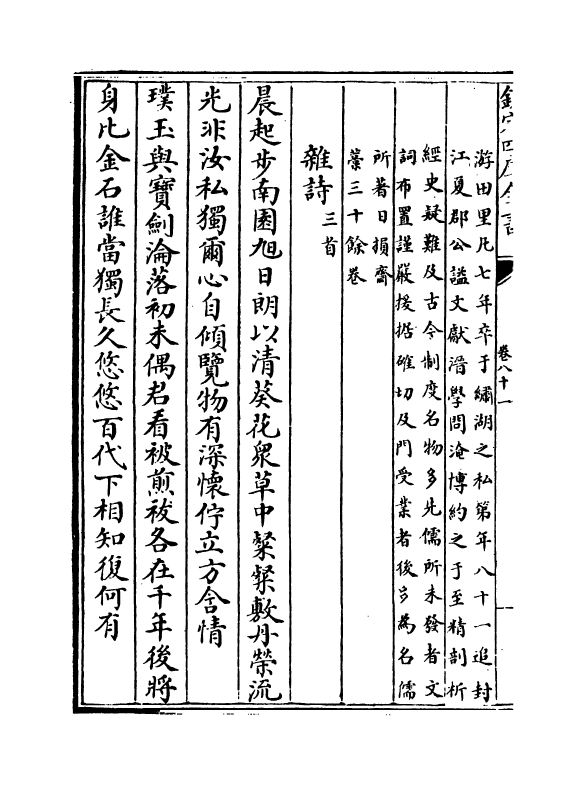 欽定四庫全書
卷八十一
游田里凡七年卒于繡湖之私第年八十一追封
江夏郡公諡文獻溍學問淹博約之于至精剖析
經史疑難及古今制度名物多先儒所未發者文
詞布置謹嚴援據確切及門受業者後多為名儒
所著日損齋
藁三十餘卷
雜詩三首
晨起步南園旭日朗以清葵花衆草中粲粲敷丹榮流
光非汝私獨爾心自傾覽物有深懷佇立方含情
璞玉與寶劍淪落初未偶君看被煎祓各在千年後將
身比金石誰當獨長久悠悠百代下相知復何有